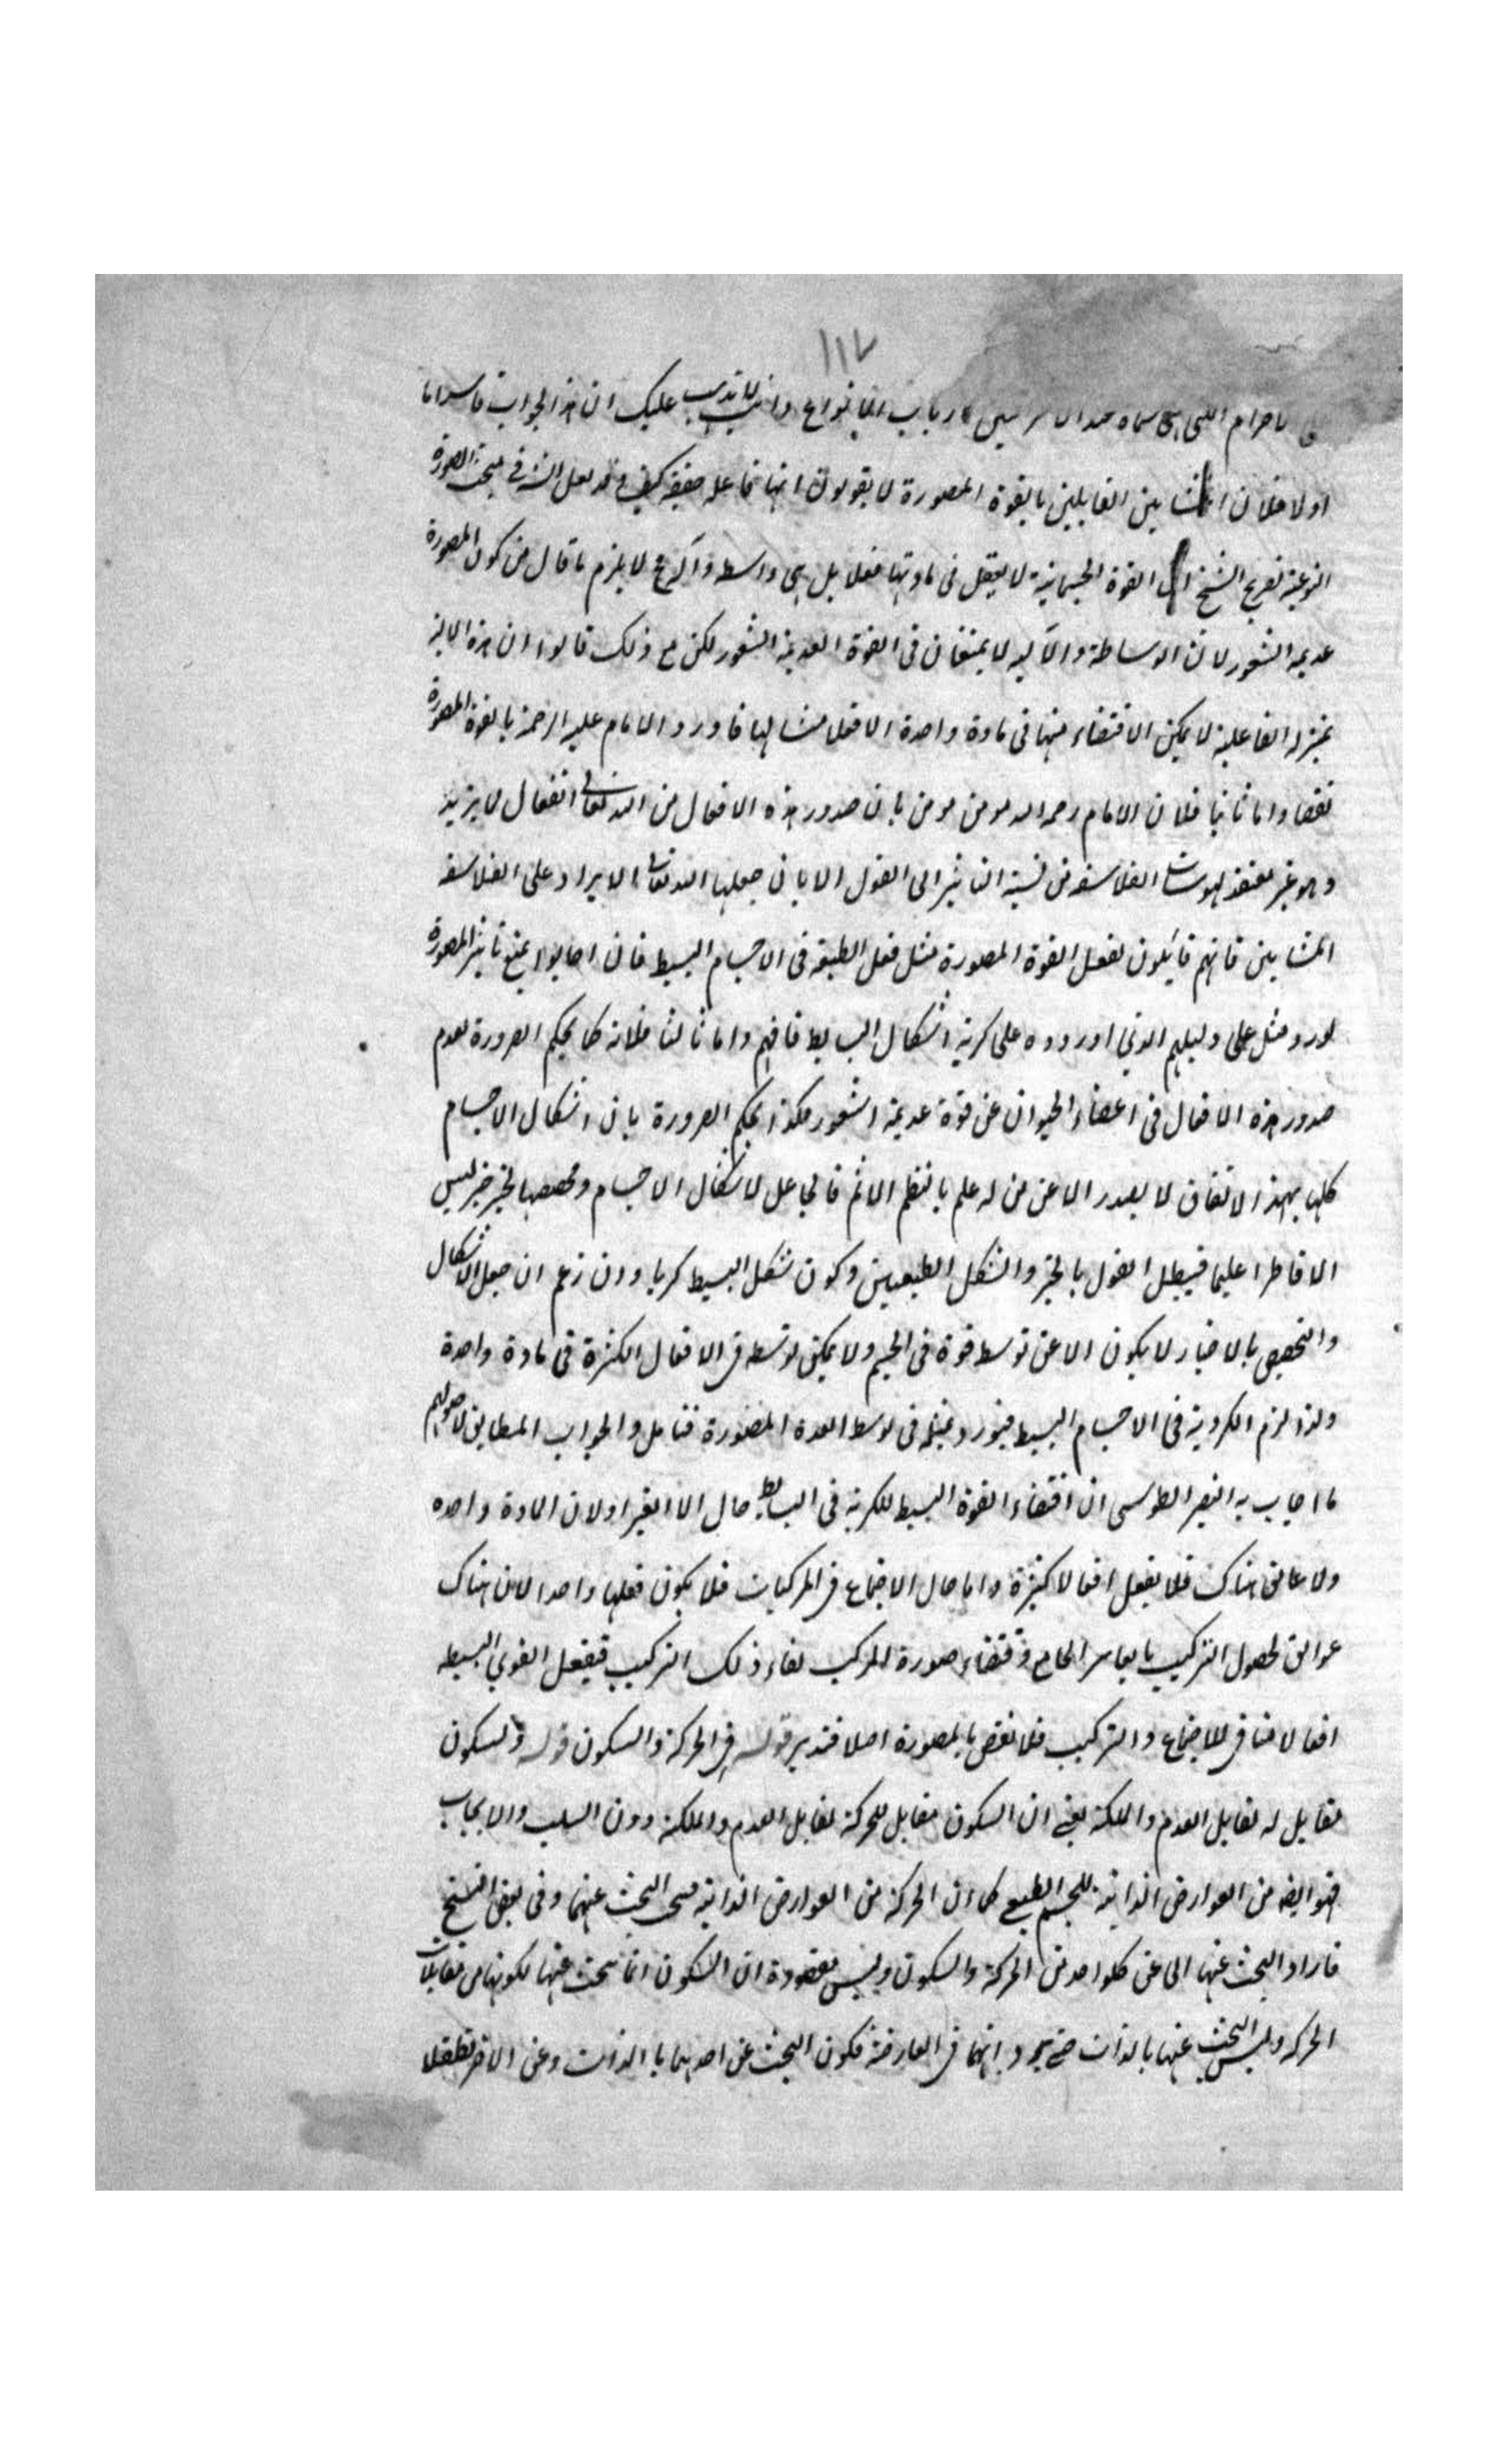 ١١٧
بارباب الانواع وانت لا يذهب عليك ان هذا الجواب فاسد اما
اولا فلان المشايين القايلين بالقوة المصورة لا يقولون انها فاعلة حقيقة كيف وقد نقل الش في مبحث الصورة
النوعية تصريح الشيخ ان القوة الجسمانية لا يفعل في مادتها فعلا بل هي واسطة وآلة لا يلزم ما قال من كون المصورة
عديمة الشعور لان الوساطة والآلية لا يمتنعان في القوة العديمة الشعور لكن مع ذلك قالوا ان هذه الالية
بمنزلة الفاعلية لا يمكن الاقتضاء منها في مادة واحدة الا فعلا متشابها فاورد الامام عليه الرحمة بالقوة المصورة
نقضا واما ثانيا فلان الامام رحمه الله مومن بان صدور هذه الافعال من الله تعالى
وهو غير معتقد لهوسات الفلاسفة من نسبة التاثير الى القوى الا بان جعلها الله تعالى الايراد على الفلاسفة
المشايين فانهم قايلون بفعل القوة المصورة مثل فعل الطبيعة في الاجسام البسيط فان اجابوا بمنع تاثير المصورة
لورد مثل على دليلهم الذي اوردوه على كرية اشكال البسايط فافهم واما ثالثا فلانه كما يحكم الضرورة بعدم
صدور هذه الافعال في اعضاء الحيوان عن قوة عديمة الشعور هكذا يحكم الضرورة بان اشكال الاجسام
كلها بهذا الاتفاق لا يصدر الا عن من له علم بالنظم الاتم فالجاعل لاشكال الاجسام ومخصصها بحيز حيز ليس
الا فاطرا عليما فيبطل القول بالحيز والشكل الطبيعيين وكون شكل البسيط كريا وان زعم ان جعل الاشكال
والتخصيص بالاحياز لا يكون الا عن توسط قوة في الجسم ولا يمكن توسطه في الافعال الكثيرة في مادة واحدة
ولذا لزم الكروية في الاجسام البسيط فيورد في توسط القوة المصورة فتامل والجواب المطابق لاصولهم
ما اجاب به النصير الطوسي ان اقتضاء القوة البسيط للكرية في البسايط حال الانفراد لان المادة واحدة
ولا عائق هناك فلا يفعل افعالا كثيرة واما حال الاجتماع في المركبات فلا يكون فعلها واحدا لان هناك
عوائق لحصول التركيب بالقاسر الجامع واقتضاء صورة المركب بقاء ذلك التركيب فيفعل القوي البسيطة
افعالا منافى للاجتماع والتركيب فلا نقض بالمصورة اصلا فتدبر قوله في الحركة والسكون قوله والسكون
تقابل له تقابل العدم والملكة يعني ان السكون مقابل للحركة تقابل العدم والملكة دون السلب والايجاب
فهو ايضا من العوارض الذاتية للجسم الطبيعي كما ان الحركة من العوارض الذاتية البحث عنهما وفي بعض النسخ
فاراد البحث عنها اى عن كلواحد من الحركة والسكون وليس مقصوده ان السكون انما يبحث عنها لكونها من مقابلات
الحركة وليس البحث عنها بالذات انهما في العارضة فكون البحث عن احدهما بالذات وعن الاخر تطفلا